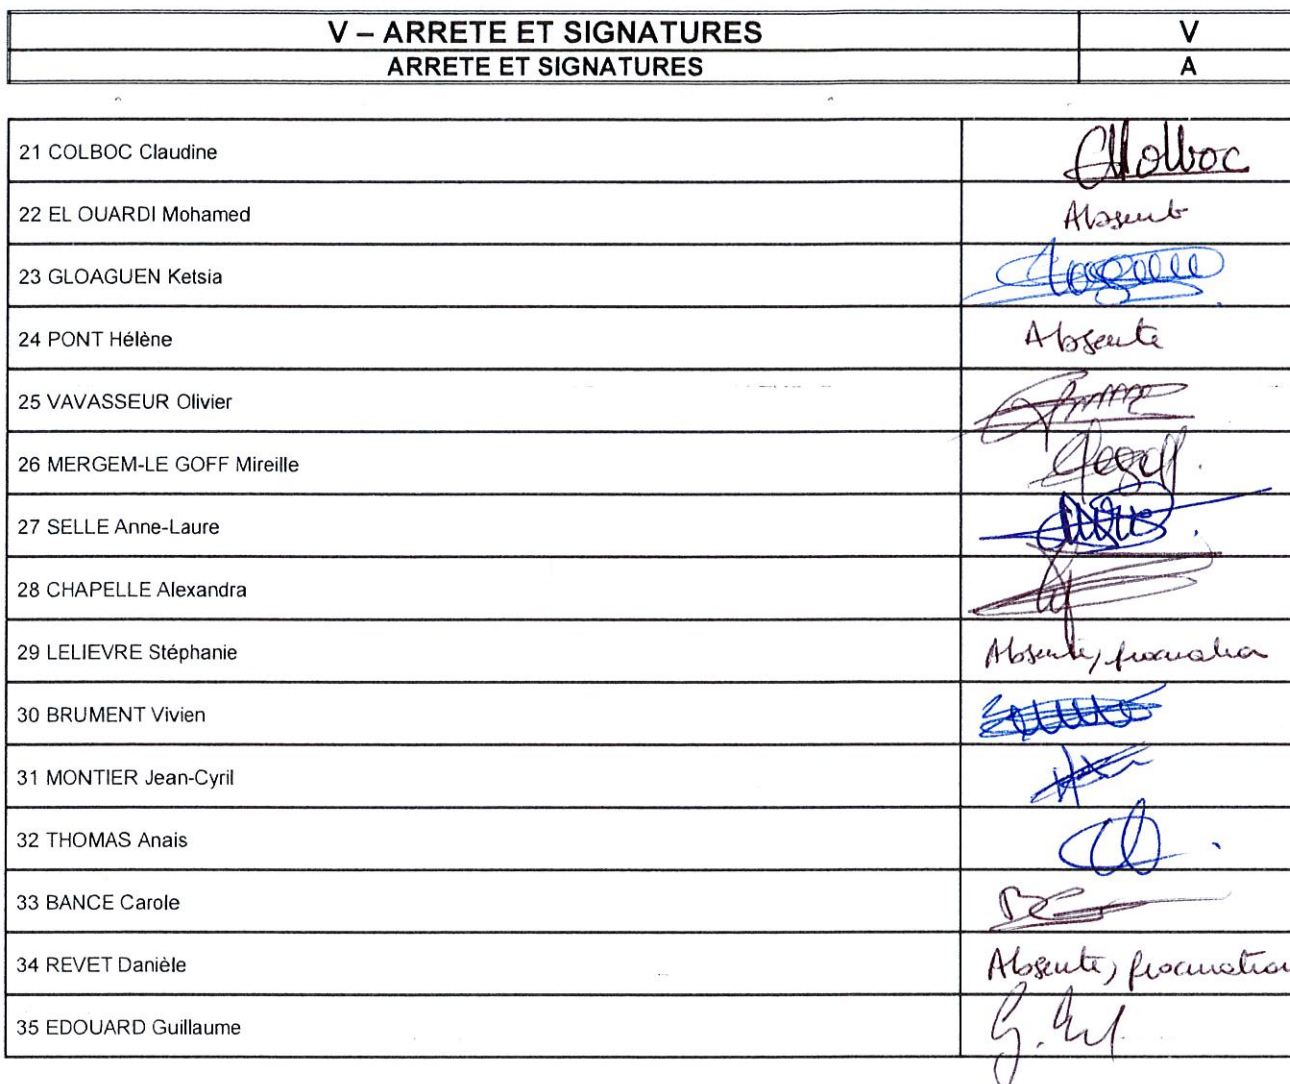 V – ARRETE ET SIGNATURES V
ARRETE ET SIGNATURES A
21 COLBOC Claudine Colboc
22 EL OUARDI Mohamed Absent
23 GLOAGUEN Ketsia
24 PONT Hélène Absente
25 VAVASSEUR Olivier
26 MERGEM-LE GOFF Mireille
27 SELLE Anne-Laure
28 CHAPELLE Alexandra
29 LELIEVRE Stéphanie Absente, procuration
30 BRUMENT Vivien
31 MONTIER Jean-Cyril
32 THOMAS Anais
33 BANCE Carole
34 REVET Danièle Absente, procuration
35 EDOUARD Guillaume